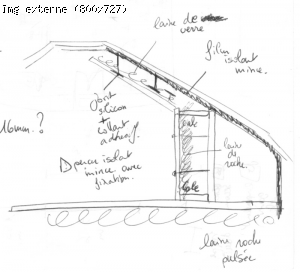 Img externe (800/727)
laine de verre
film isolant mince.
Joint silicon + collant adhésif
16mm.?
laine de roche
pause isolant mince avec fixation.
laine roche pulsée